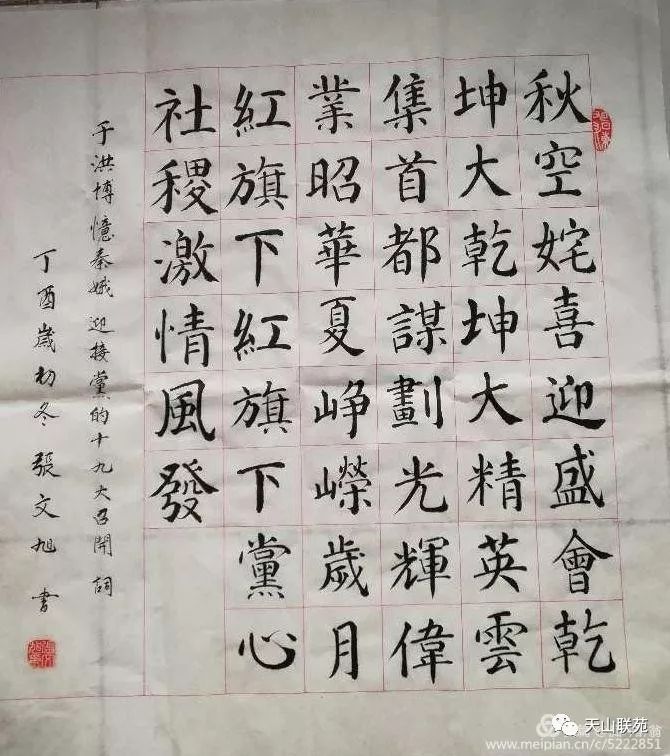 秋空姹喜迎盛會乾
坤大乾坤大精英雲
集首都謀劃光輝偉
業昭華夏峥嶸歲月
紅旗下紅旗下黨心
社稷激情風發
于洪博憶秦娥 迎接黨的十九大召開詞
丁酉歲初冬 張文旭 書
天山联苑
www.meipian.cn/c/5222851